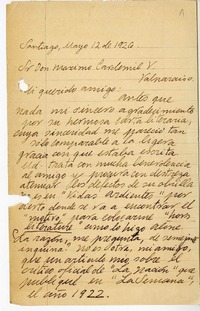 1
Santiago, Mayo 12 de 1926.
Sr. Don Maximo Cardemil V.
Valparaiso.
Mi querido amigo:
Antes que
nada mi sincero agradecimiento
por su hermosa carta literaria,
cuya sinceridad me pareció tan
solo comparable a la ligera
gracia con que estaba escrita
Ud. trata con mucha benevolencia
de amigo y procura con destreza
atenuar los defectos de su
es en "Vidas ardientes", por
donde se va a encontrar el
motivo para colocarme "hors
literature" como lo hizo Alone
La razón, me pregunta, de semejante
No es otra, mi amigo,
que un artículo mio sobre el
critico oficial de "La Nación" que
publiqué en "La Semana",
el año 1922.